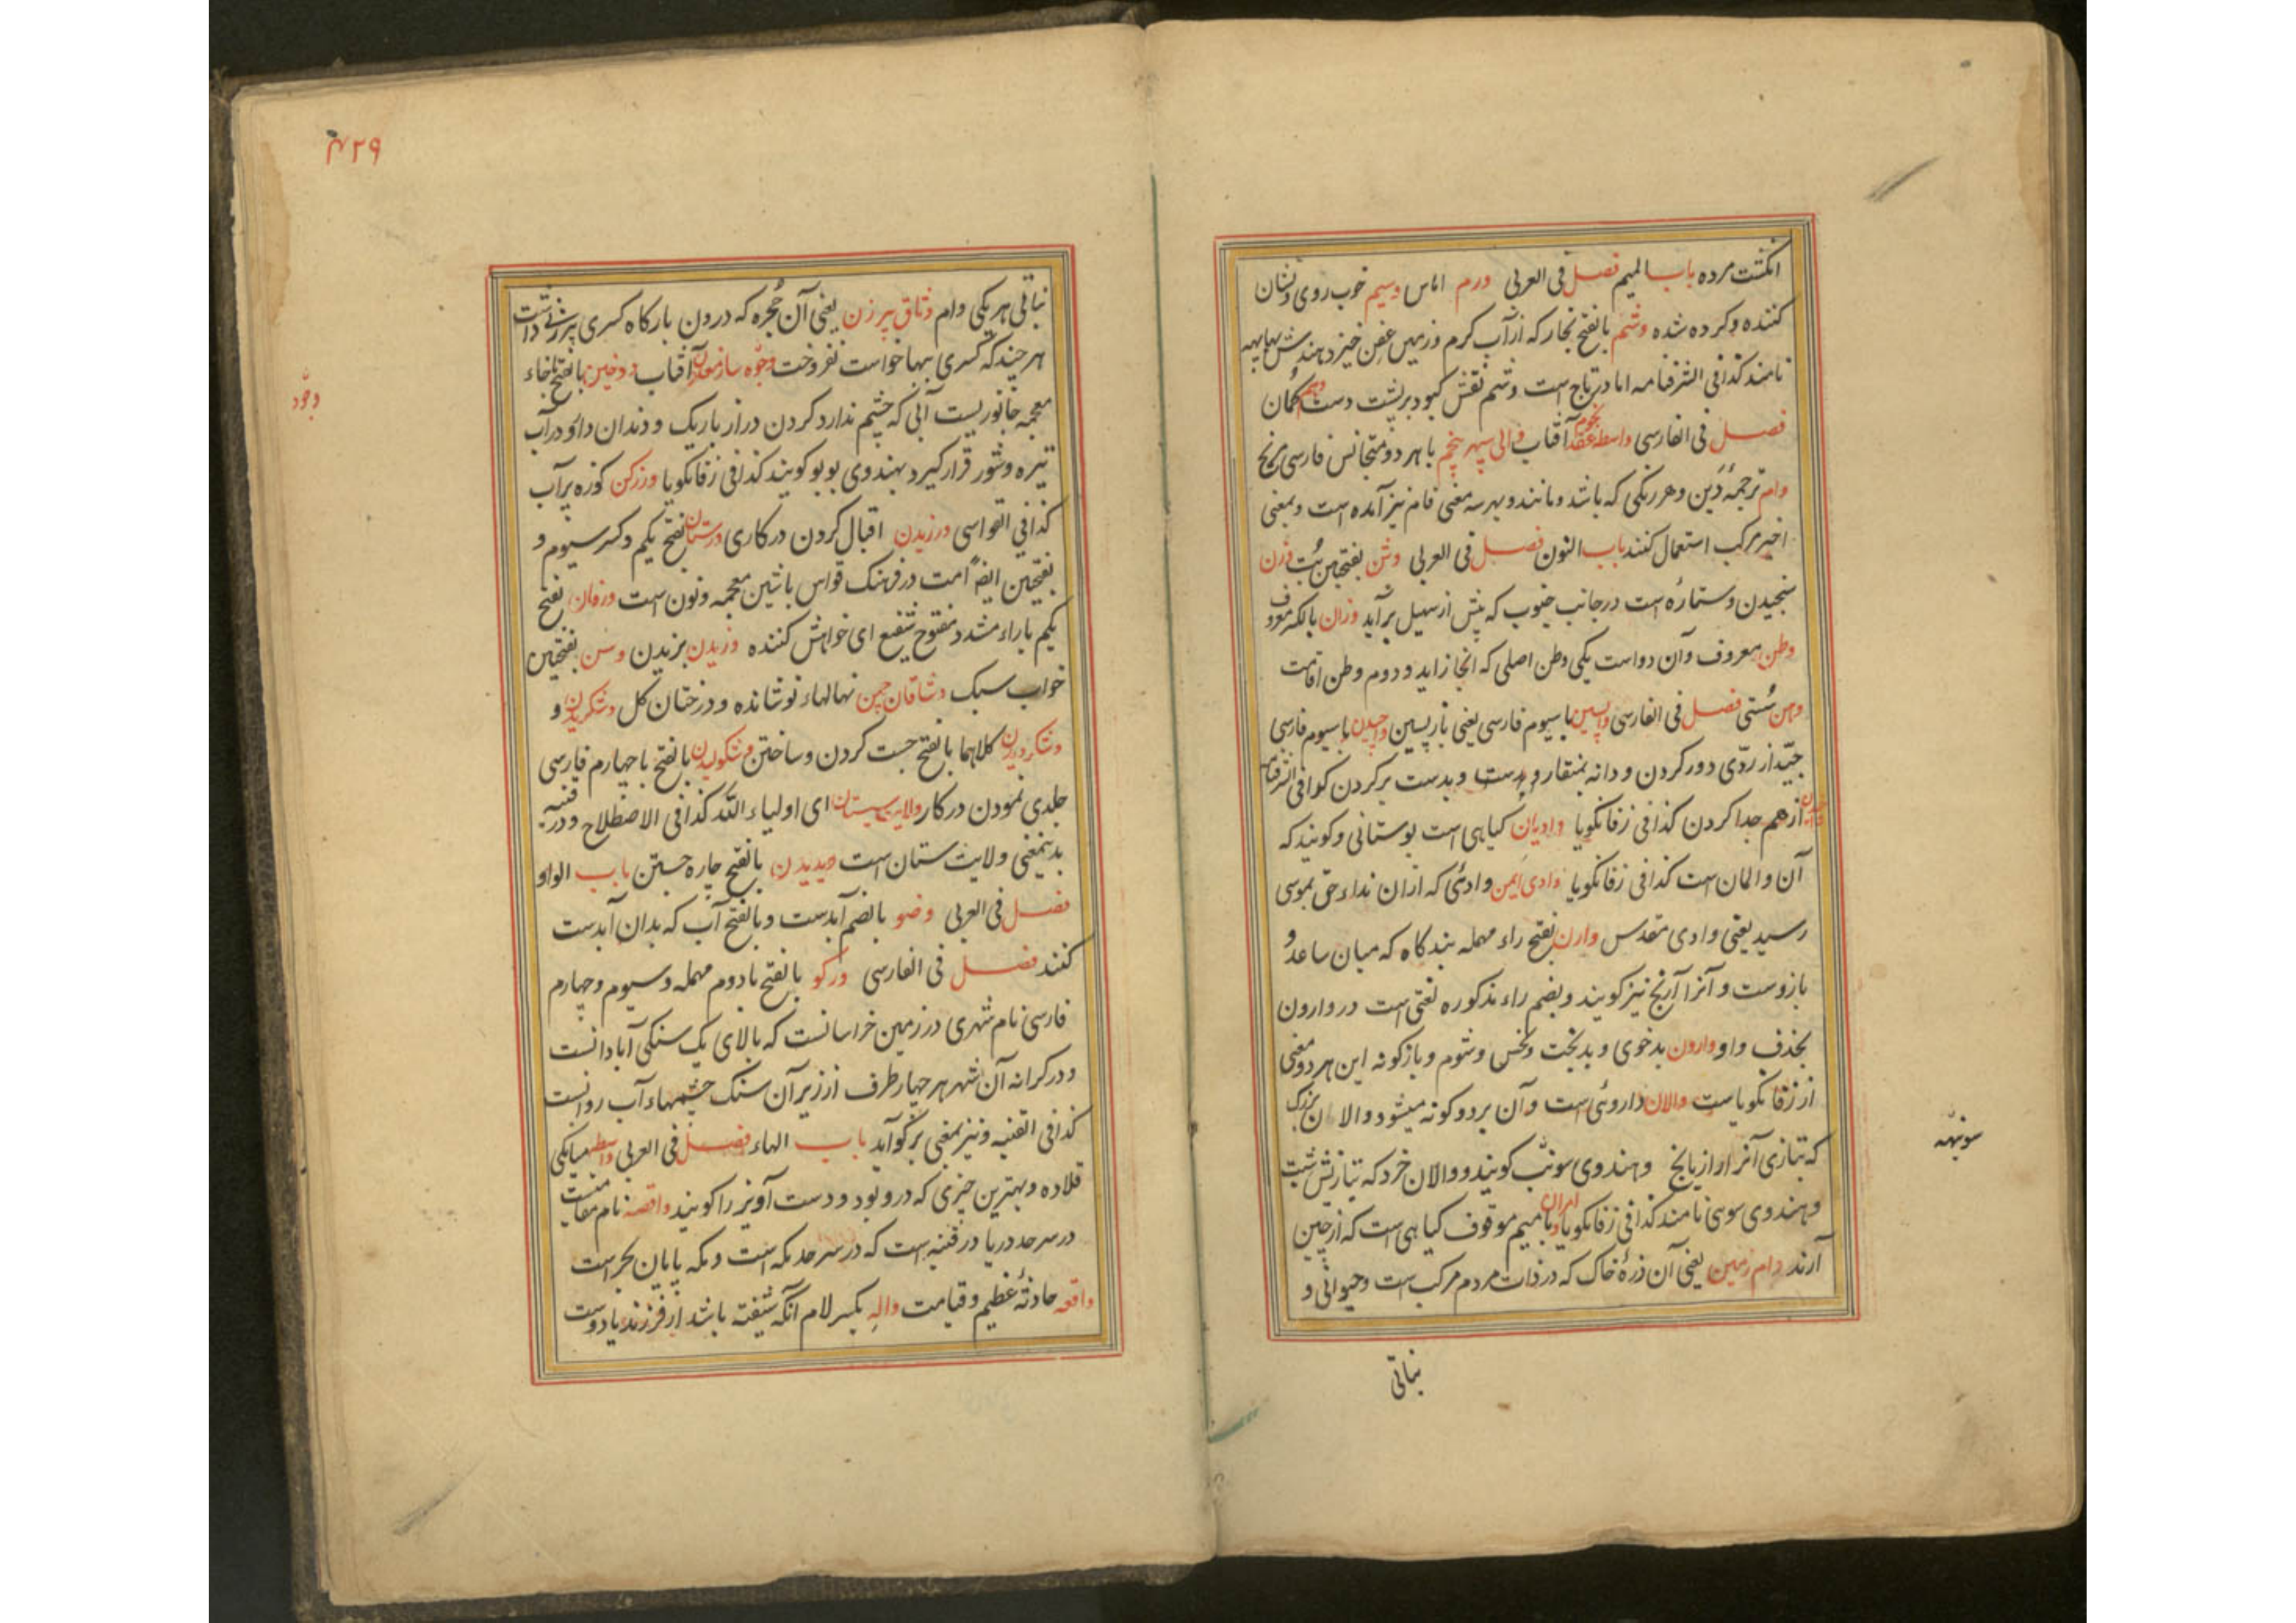 انکشت مرده باب المیم فصل فی العربی ورم اماس وسیم خوب روی و نشان
کننده و کرده شده وشم بالفتح بخار که از آب کرم و زمین عفن خیزد هندش بهاپهه
نامند کذا فی الشرفنامه اما در تاج است وشم نقش کبود بر پشت دست وهم کمان
فصل فی الفارسی واسطه عقد نجوم آفتاب والی سپهر پنجم با هر دو متجانس فارسی مریخ
وام ترجمهٔ دَین و هر رنکی که باشد و مانند و بهر سه معنی فام نیز آمده است و بمعنی
اخیر مرکب استعمال کنند باب النون فصل فی العربی وثن بفتحتین بُت وزن
سنجیدن و ستاره است در جانب جنوب که پیش از سهیل برآید وزان بالکسر معروف
وطن معروف و آن دو است یکی وطن اصلی که آنجا زاید و دوم وطن اقامت
وهن سُستی فصل فی الفارسی واپسین با سیوم فارسی یعنی بازپسین واچیدن با سیوم فارسی
جیّد از ردّی دور کردن و دانه بمنقار و بدست برکردن کذا فی الشرفنامه
از هم جدا کردن کذا فی زفانکویا وادیان کیاهی است بوستانی و کویند که
آن والان است کذا فی زفانکویا وادی ایمن وادئی که ازان نداء حق بموسی
رسید یعنی وادی مقدس وارن بفتح راء مهمله بندکاه که میان ساعد و
بازوست و آنرا آرنج نیز کویند و بضم راء مذکوره لغتی است در وارون
بحذف واو وارون بدخوی و بدبخت و نحس و شوم و بازکونه این هر دو معنی
از زفانکویاست والان داروئی است و آن بر دو کونه میشود والان بزرک
که بتازی آنرا رازیانج و هندوی سونپ کویند و والان خرد که بتازیش شبت
و هندوی سوی نامند کذا فی زفانکویا وامران با میم موقوف کیاهی است که از چین
آرند وام زمین یعنی آن ذرهٔ خاک که در ذات مردم مرکب است و حیوانی و
نباتی
سونپهه
۴۲۹
نباتی هر یکی وام وثاق پیرزن یعنی آن حُجره که درون بارکاه کسری پیرزنی داشت
هر چند که کسری ببها خواست نفروخت وجوه ساز معدن آفتاب وخین بالفتح با خاء
معجمه جانوریست آبی که چشم ندارد کردن دراز باریک و دندان دارد در آب
تیره و شور قرار کیرد بهندوی بوبو کویند کذا فی زفانکویا ورزکن کوزه پرآب
کذا فی القواسی ورزیدن اقبال کردن در کاری ورستان بفتح یکم و کسر سیوم و
بفتحتین ایضاً امت در فرهنک قواس با شین معجمه و نون است ورفان بفتح
یکم با راء مشدد مفتوح شفیع ای خواهش کننده وزیدن بزیدن وسن بفتحتین
خواب سبک وشاقان چمن نهالهاء نوشانده و درختان کل وشکریدن و
وشکردیدن کلاهما بالفتح جست کردن و ساختن وشکولیدن بالفتح با چهارم فارسی
جلدی نمودن در کار ولایت ستان ای اولیاء اللّه کذا فی الاصطلاح و در قنیه
بدینمعنی ولایت ستان است ویدیدن بالفتح چاره جستن باب الواو
فصل فی العربی وضو بالضم آبدست و بالفتح آب که بدان آبدست
کنند فصل فی الفارسی ورکو بالفتح با دوم مهمله و سیوم و چهارم
فارسی نام شهری در زمین خراسانست که بالای یک سنکی آبادانست
و در کرانه آن شهر هر چهار طرف از زیر آن سنک چشمهاء آب روانست
کذا فی القنیه و نیز بمعنی برکو آید باب الهاء فصل فی العربی واسطه میانکی
قلاده و بهترین چیزی که درو بود و دست آویز را کویند واقصه نام مقامیست
در سرحد دریا در قنیه است که در سرحد مکه است و مکه پایان بحر است
واقعه حادثهٔ عظیم و قیامت واله بکسر لام آنکه شیفته باشد از فرزند یا دوست
وجوه